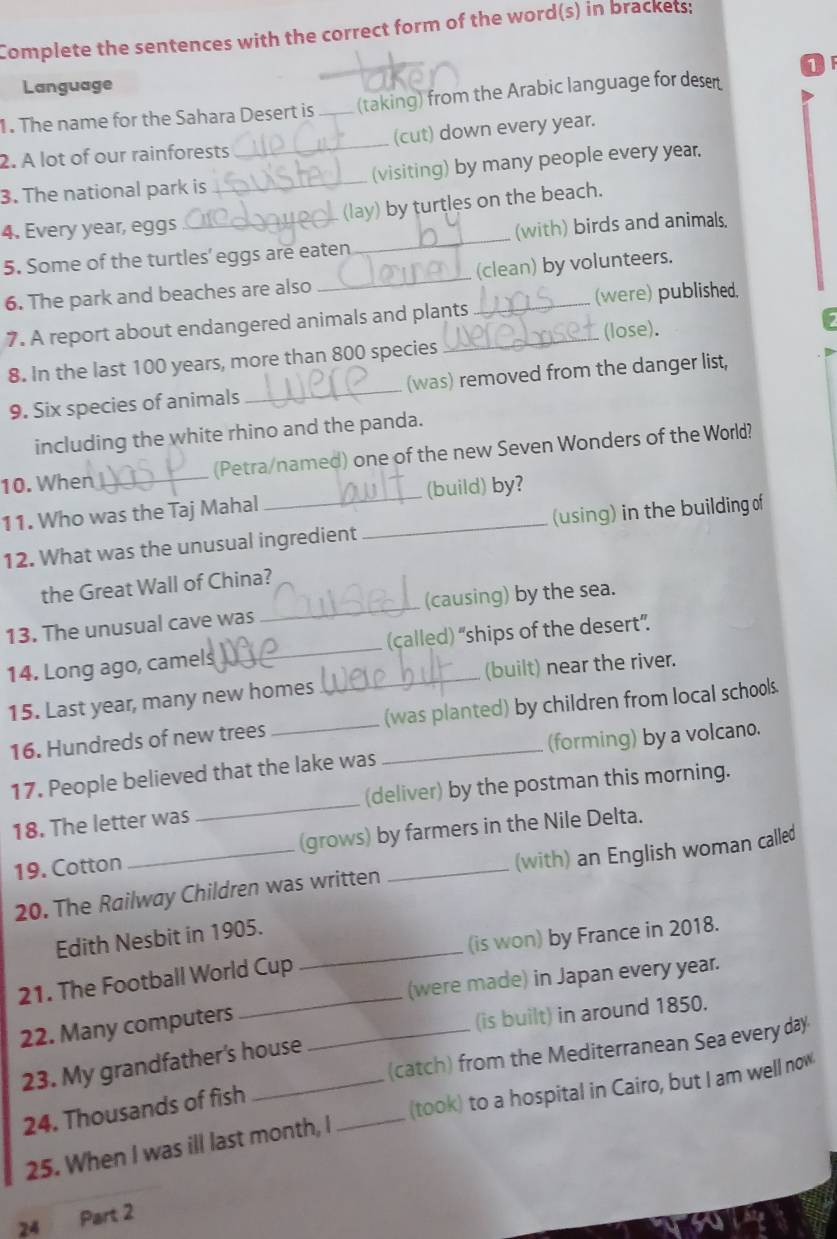 Complete the sentences with the correct form of the word(s) in brackets:
Language
1. The name for the Sahara Desert is taken (taking) from the Arabic language for desert
2. A lot of our rainforests are cut (cut) down every year.
3. The national park is (visiting) by many people every year.
4. Every year, eggs (lay) by turtles on the beach.
5. Some of the turtles' eggs are eaten by (with) birds and animals.
6. The park and beaches are also (clean) by volunteers.
7. A report about endangered animals and plants was (were) published.
8. In the last 100 years, more than 800 species (lose).
9. Six species of animals were (was) removed from the danger list,
including the white rhino and the panda.
10. When was P (Petra/named) one of the new Seven Wonders of the World?
11. Who was the Taj Mahal built (build) by?
12. What was the unusual ingredient (using) in the building of
the Great Wall of China?
13. The unusual cave was (causing) by the sea.
14. Long ago, camels (called) "ships of the desert".
15. Last year, many new homes were built (built) near the river.
16. Hundreds of new trees (was planted) by children from local schools.
17. People believed that the lake was (forming) by a volcano.
18. The letter was (deliver) by the postman this morning.
19. Cotton (grows) by farmers in the Nile Delta.
20. The Railway Children was written (with) an English woman called
Edith Nesbit in 1905.
21. The Football World Cup (is won) by France in 2018.
22. Many computers (were made) in Japan every year.
23. My grandfather's house (is built) in around 1850.
24. Thousands of fish (catch) from the Mediterranean Sea every day.
25. When I was ill last month, I (took) to a hospital in Cairo, but I am well now.
24 Part 2
1
2